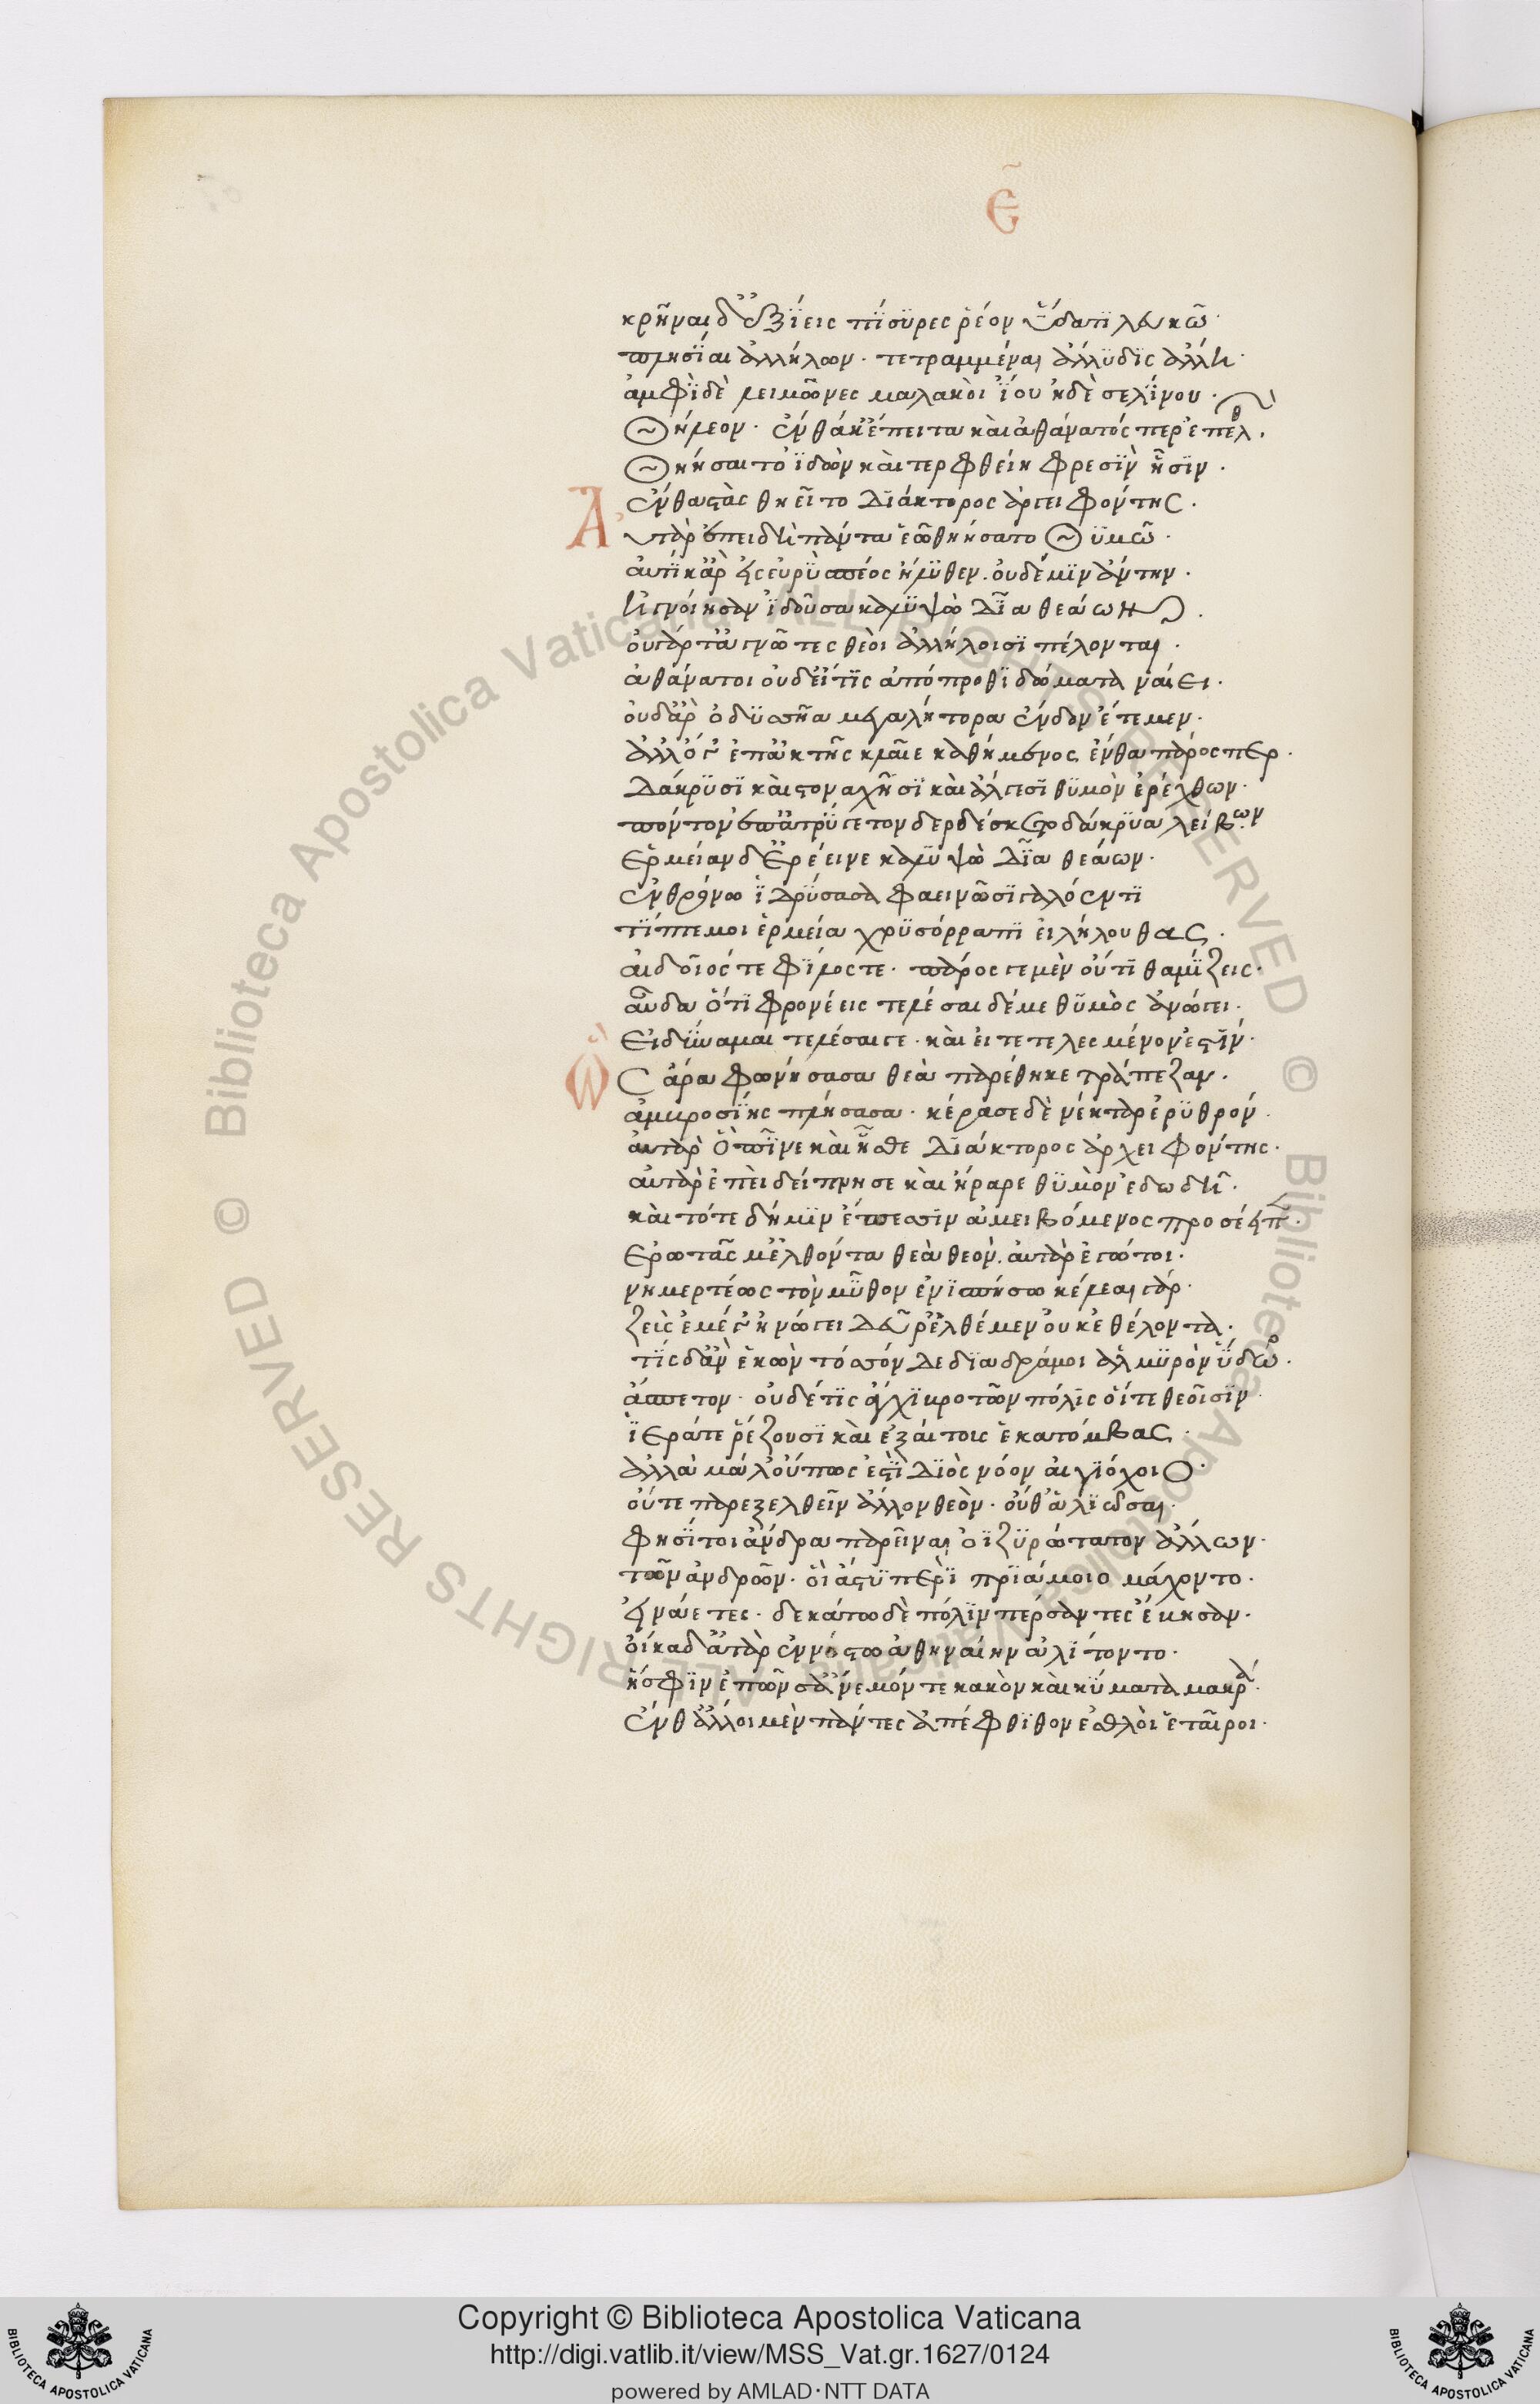 Ε̃
κρῆναι δ' ἑξΐεις πΐσϋρες ῥέον ὕδατϊ λευκῶ·
πλησΐαι ἀλλήλων· τετραμμέναι ἄλλϋδϊς ἄλλη·
ἀμφῒ δὲ λειμῶνες μαλακὸι ἴου ἠδὲ σελΐνου·
Θήλεον· ἔνθά κ' ἔπειτα κὰι ἀθάνατός περ ἐπελθ
Θηήσαιτο ἰδὼν κὰι τερφθείη φρεσῒν ἧσϊν·
ἔνθα στὰς θηεῖτο Διάκτορος ἀργειφόντης·
Αὐτὰρ ἐπειδὴ πάντα ἑῶ θηήσατο Θϋμῶ·
αὐτΐκ' ἄρ' ἐς εὐρῢ σπέος ἤλϋθεν. οὐδέ μϊν ἄντην·
ἠγνόιησεν ἰδοῦσα καλϋψὼ Δῖα θεάων·
οὐ γάρ τ' ἀγνῶτες θεὸι ἀλλήλοισϊ πέλονται·
ἀθάνατοι οὐδ' εἴ τϊς ἀπόπροθϊ δώματα νάιει·
οὐδ' ἄρ' ὀδϋσσῆα μεγαλήτορα ἔνδον ἔτεμεν·
ἀλλ' ὅγ' ἐπ' ἀκτῆς κλᾶιε καθήμενος, ἔνθα πάρος περ·
Δάκρϋσϊ κὰι στοναχῆσϊ κὰι ἄλγεσϊ θϋμὸν ἐρέχθων·
πόντον ἐπ' ἀτρΰγετον δερδέσκετο δάκρϋα λείβων
Ἑρμείαν δ' ἐρέεινε καλϋψὼ Δῖα θεάων·
ἐν θρόνω ἱδρΰσασα φαεινῶ σϊγαλόεντϊ
τΐπτε μοι ἑρμεία χρϋσόρραπϊ εἰλήλουθας·
αἰδοῖός τε φΐλος τε· πάρος γε μὲν οὔτϊ θαμΐζεις·
αὔδα ὅτϊ φρονέεις τελέσαι δέ με θϋμὸς ἀνώγει·
Εἰ δΰναμαι τελέσαι γε· κὰι εἰ τετελεσμένον ἐστΐν·
Ὣς ἄρα φωνήσασα θεὰ παρέθηκε τράπεζαν·
ἀμβροσΐης πλήσασα· κέρασε δὲ νέκταρ ἐρϋθρόν·
αὐτὰρ ὃ πῖνε κὰι ἦσθε Διάκτορος ἀρχειφόντης·
αὐτὰρ ἐπὲι δείπνησε κὰι ἤραρε θϋμὸν ἐδωδῆ·
κὰι τότε δή μϊν ἔπεσσϊν ἀμειβόμενος προσέειπ·
Ἐρωτᾶς μ' ἐλθόντα θεὰ θεόν. ἀυτὰρ ἐγώ τοι·
νημερτέως τὸν μῦθον ἐνϊσπήσω κέλεαι γάρ·
ζεὺς ἐμέ γ' ἠνώγει Δεῦρ' ἐλθέμεν οὐκ ἐθέλοντα·
τΐς δ' ἂν ἑκὼν τόσσόν Δε δϊαδράμοι ἁλμϋρὸν ὕδωρ·
ἄσπετον· οὐδέ τϊς ἄγχϊ βροτῶν πόλϊς ὅί τε θεοῖσϊν·
ἱερά τε ῥέζουσϊ κὰι ἐξάιτους ἑκατόμβας·
ἀλλὰ μάλ' οὔπως ἐστῒ Δϊὸς νόον αἰγϊόχοιο·
οὔτε παρεξελθεῖν ἄλλον θεὸν· οὔθ' ἁλϊῶσαι·
φησΐ τοι ἄνδρα παρεῖναι ὀϊζϋρώτατον ἄλλων·
τῶν ἀνδρῶν· ὁὶ ἄστϋ πέρϊ πρϊάμοιο μάχοντο·
εἰνάετες· δεκάτω δὲ πόλϊν πέρσαντες ἔβησαν·
ὀίκαδ' ἀτὰρ ἐν νόστω ἀθηναίην ἀλΐτοντο·
ἥ σφϊν ἐπῶρσ' ἄνεμόν τε κακὸν κὰι κΰματα μακρά·
ἔνθ' ἄλλοι μὲν πάντες ἀπέφθϊθον ἐσθλὸι ἑτᾶιροι·
Copyright © Biblioteca Apostolica Vaticana
http://digi.vatlib.it/view/MSS_Vat.gr.1627/0124
powered by AMLAD·NTT DATA